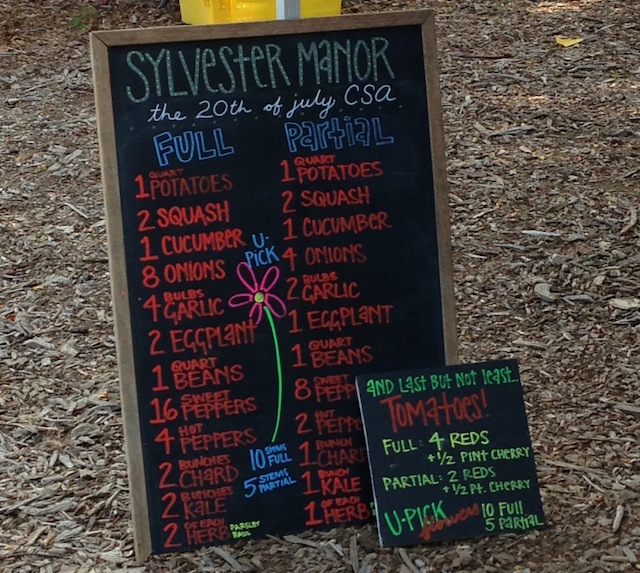 SYLVESTER MANOR
the 20th of july CSA
FULL
1 QUART POTATOES
2 SQUASH
1 CUCUMBER
8 ONIONS
4 BULBS GARLIC
2 EGGPLANT
1 QUART BEANS
16 SWEET PEPPERS
4 HOT PEPPERS
2 BUNCHES CHARD
2 BUNCHES KALE
2 OF EACH HERB PARSLEY BASIL
U-PICK
10 STEMS FULL
5 STEMS PARTIAL
PARTIAL
1 QUART POTATOES
2 SQUASH
1 CUCUMBER
4 ONIONS
2 BULBS GARLIC
1 EGGPLANT
1 QUART BEANS
8 SWEET PEPP
2 HOT PEPP
1 BUNCH CHAR
1 BUNCH KALE
1 OF EACH HERB
AND LAST BUT NOT least...
TOMATOES!
FULL: 4 REDS
+ 1/2 PINT CHERRY
PARTIAL: 2 REDS
+ 1/2 PT. CHERRY
U-PICK flowers 10 Full
5 Partial